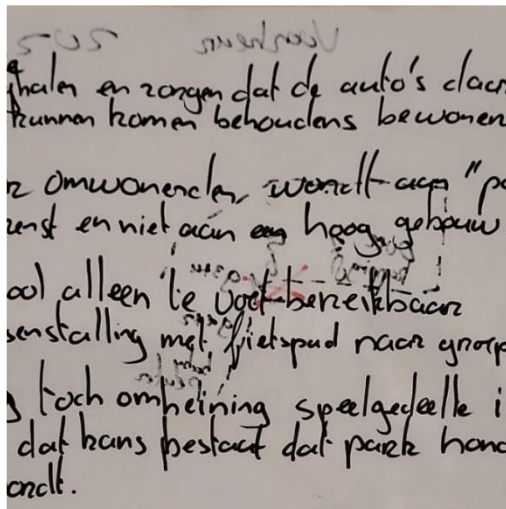 halen en zorgen dat de auto's daar
kunnen komen behoudens bewoner
omwonenden, wordt aan "p
enst en niet aan een hoog gebouw
ool alleen te voet bereikbaar
senstalling met fietspad naar groep
toch omheining speelgedeelte i
dat kans bestaat dat park hond
ordt.